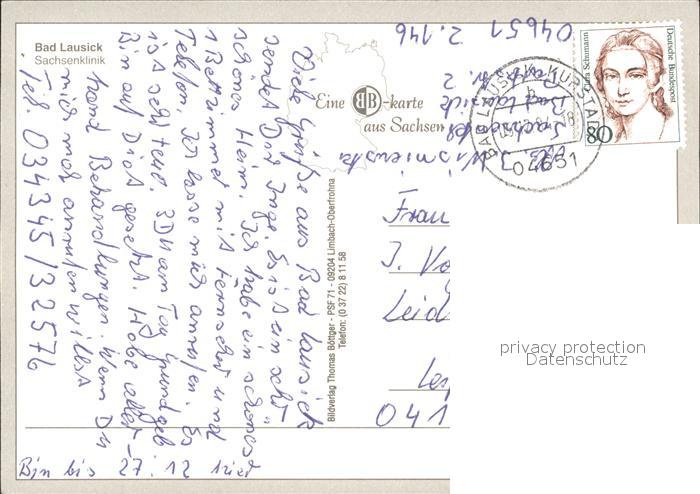 Bad Lausick
Sachsenklinik
Eine BB-karte
aus Sachsen
Bildverlag Thomas Böttger - PSF 71 - 09204 Limbach-Oberfrohna
Telefon: (0 37 22) 8 11 58
Deutsche Bundespost
Clara Schumann
80
BAD LAUSICK, KURSTADT
b
04651
Viele Grüße aus Bad Lausick
sendet Dir Inge. Es ist ein sehr
schönes Heim. Ich habe ein schönes
1 Bettzimmer mit Fernseher und
Telefon. Ich lasse mich anrufen. Es
ist sehr teuer. 3 DM am Tag Grundgeb
Bin auf Diät gesetzt. Habe aller-
hand Behandlungen. Wenn Du
mich mal anrufen willst
Tel. 034345/32576
Bin bis 27.12 hier
Sachsenklinik
Bad Lausick
Nr. 2
04651 2.146
Frau
J.
Leid
Lei
041
privacy protection
Datenschutz